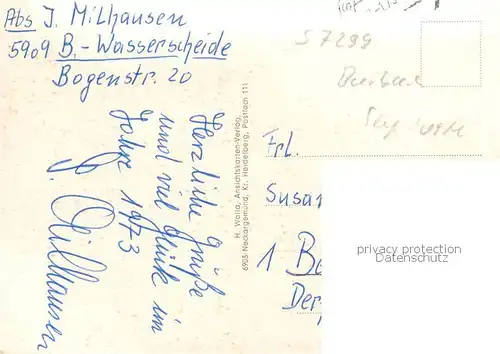 Abs J. Milhausen
5909 B.-Wasserscheide
Bogenstr. 20
Herzliche Grüße
und viel Glück im
Jahre 1973
J. Milhausen
H. Walla, Ansichtskarten-Verlag,
6903 Neckargemünd, Kr. Heidelberg, Postfach 111
S 7299
Frl.
Susan
1 Be
Der
privacy protection
Datenschutz